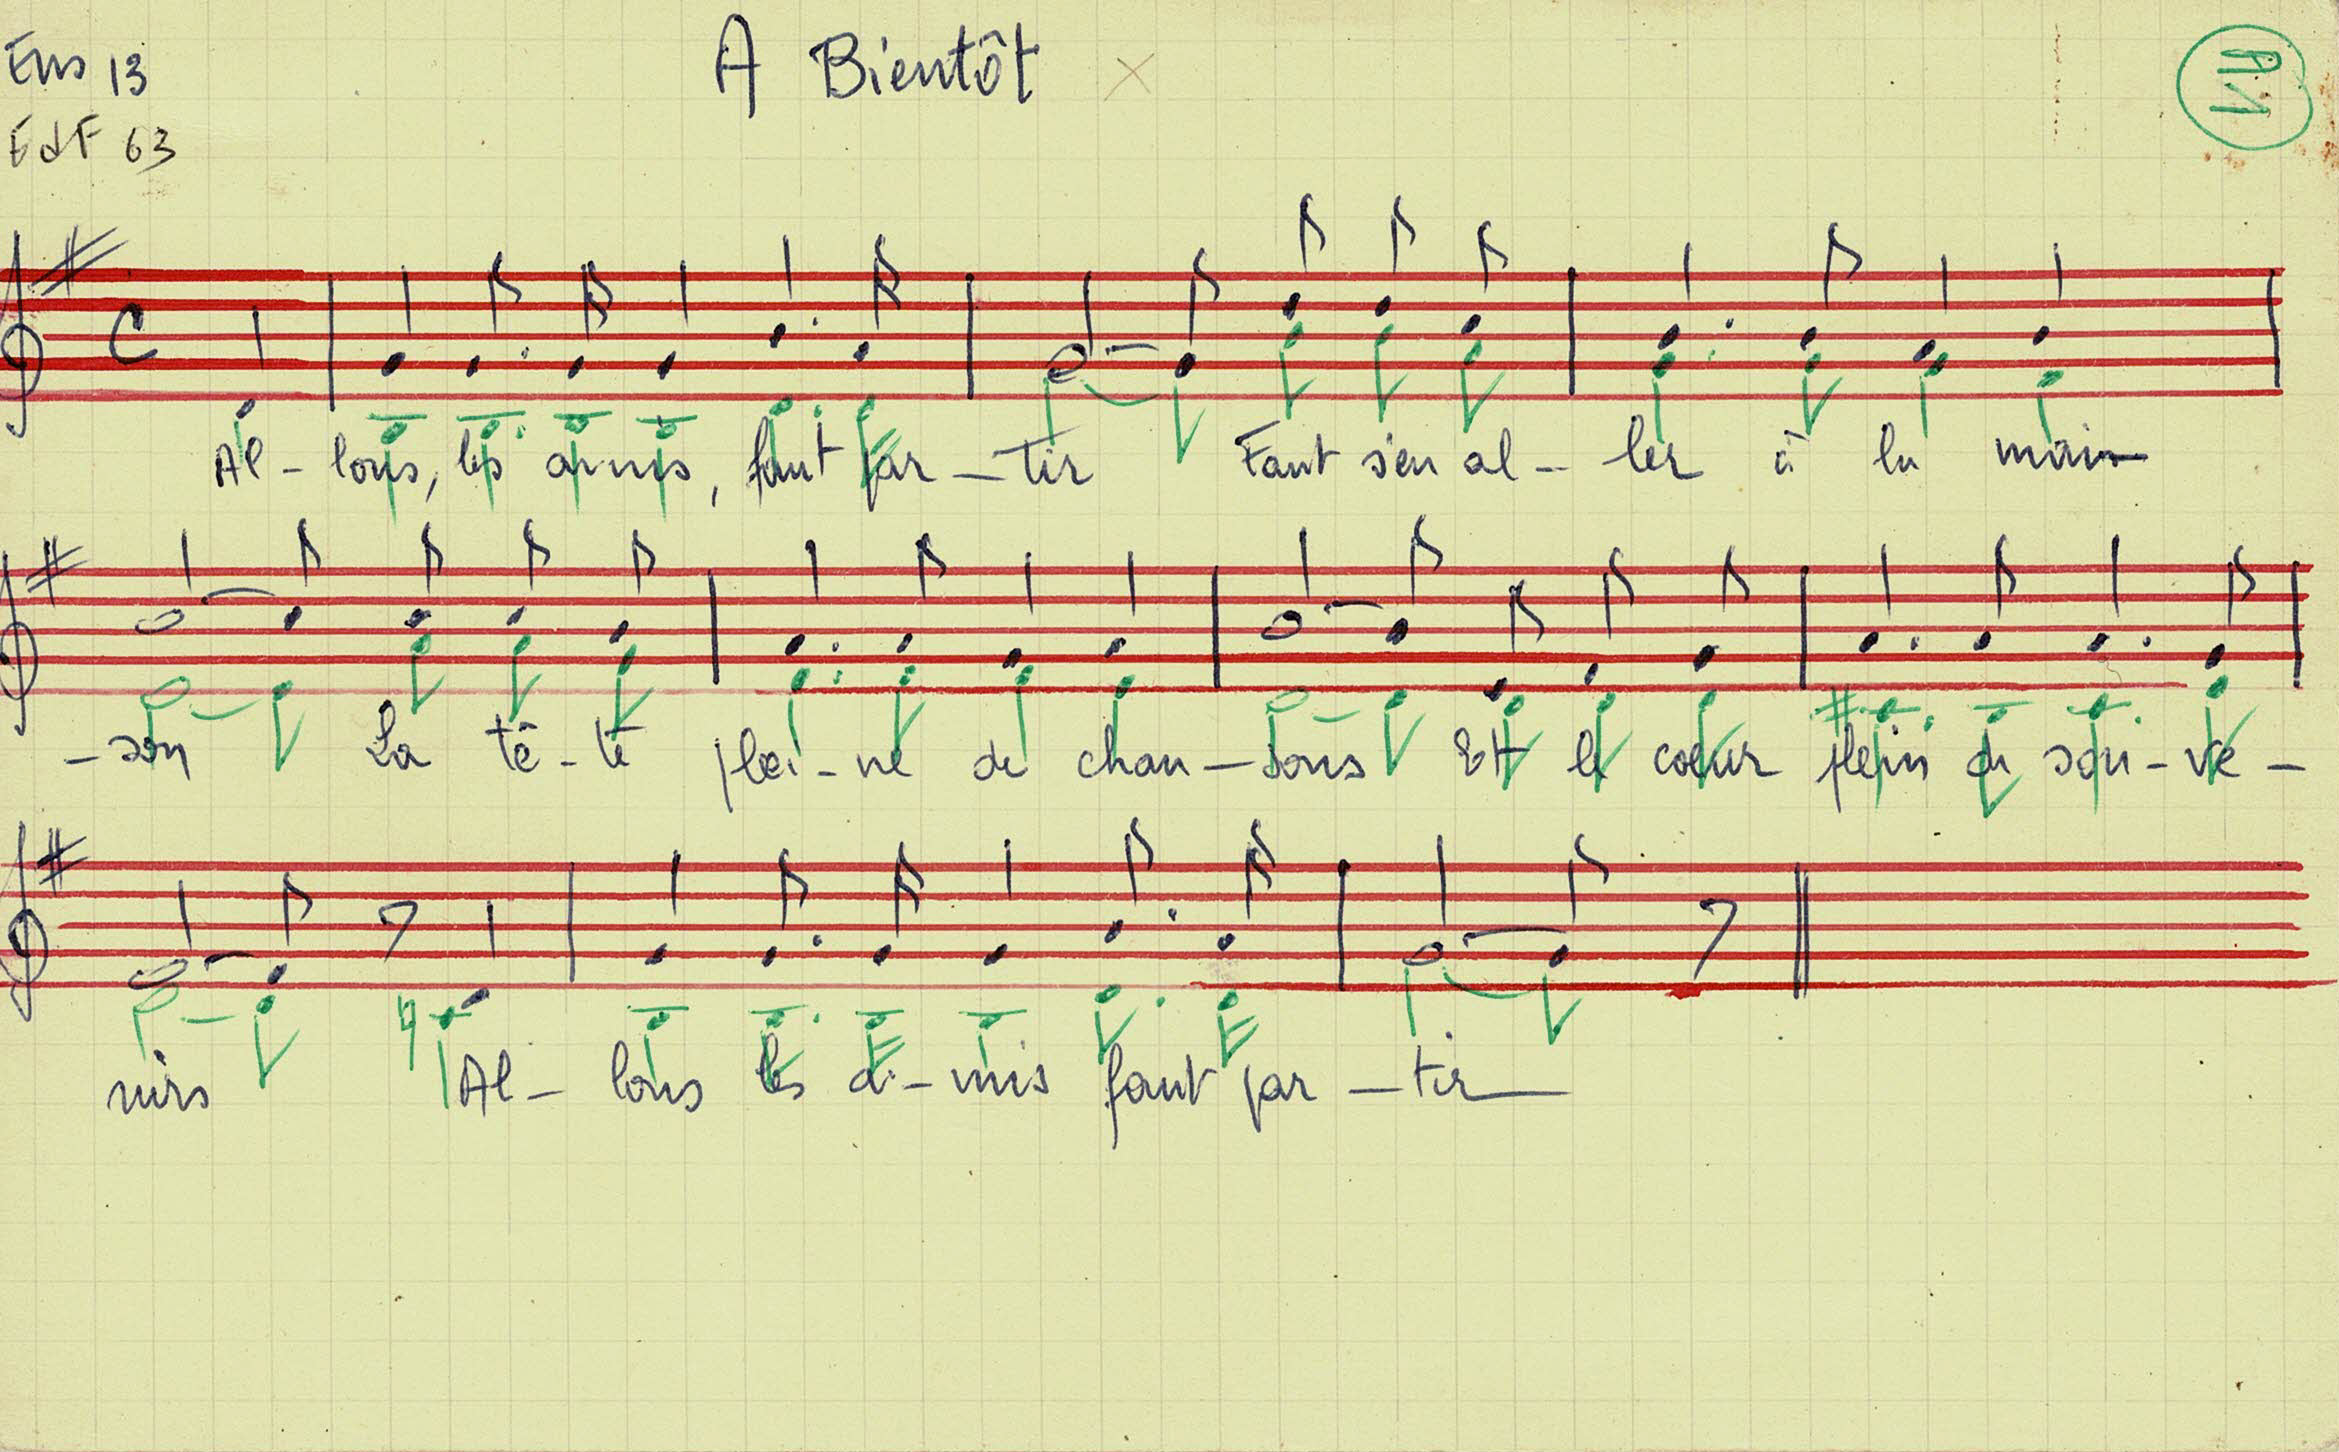 A Bientôt
Ens 13
EdF 63
C
Al - lons, les amis, faut par - tir Faut s'en al - ler à la mai
- son La tê - te plei - ne de chan - sons Et le cœur plein de sou - ve -
nirs Al - lons les a - mis faut par - tir